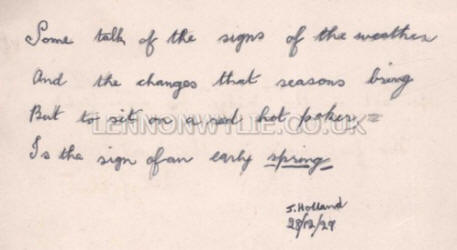 Some talk of the signs of the weather
And the changes that seasons bring
But to sit on a red hot poker =
LENNONWYLIE.CO.UK
Is the sign of an early spring
J. Holland
28/12/29